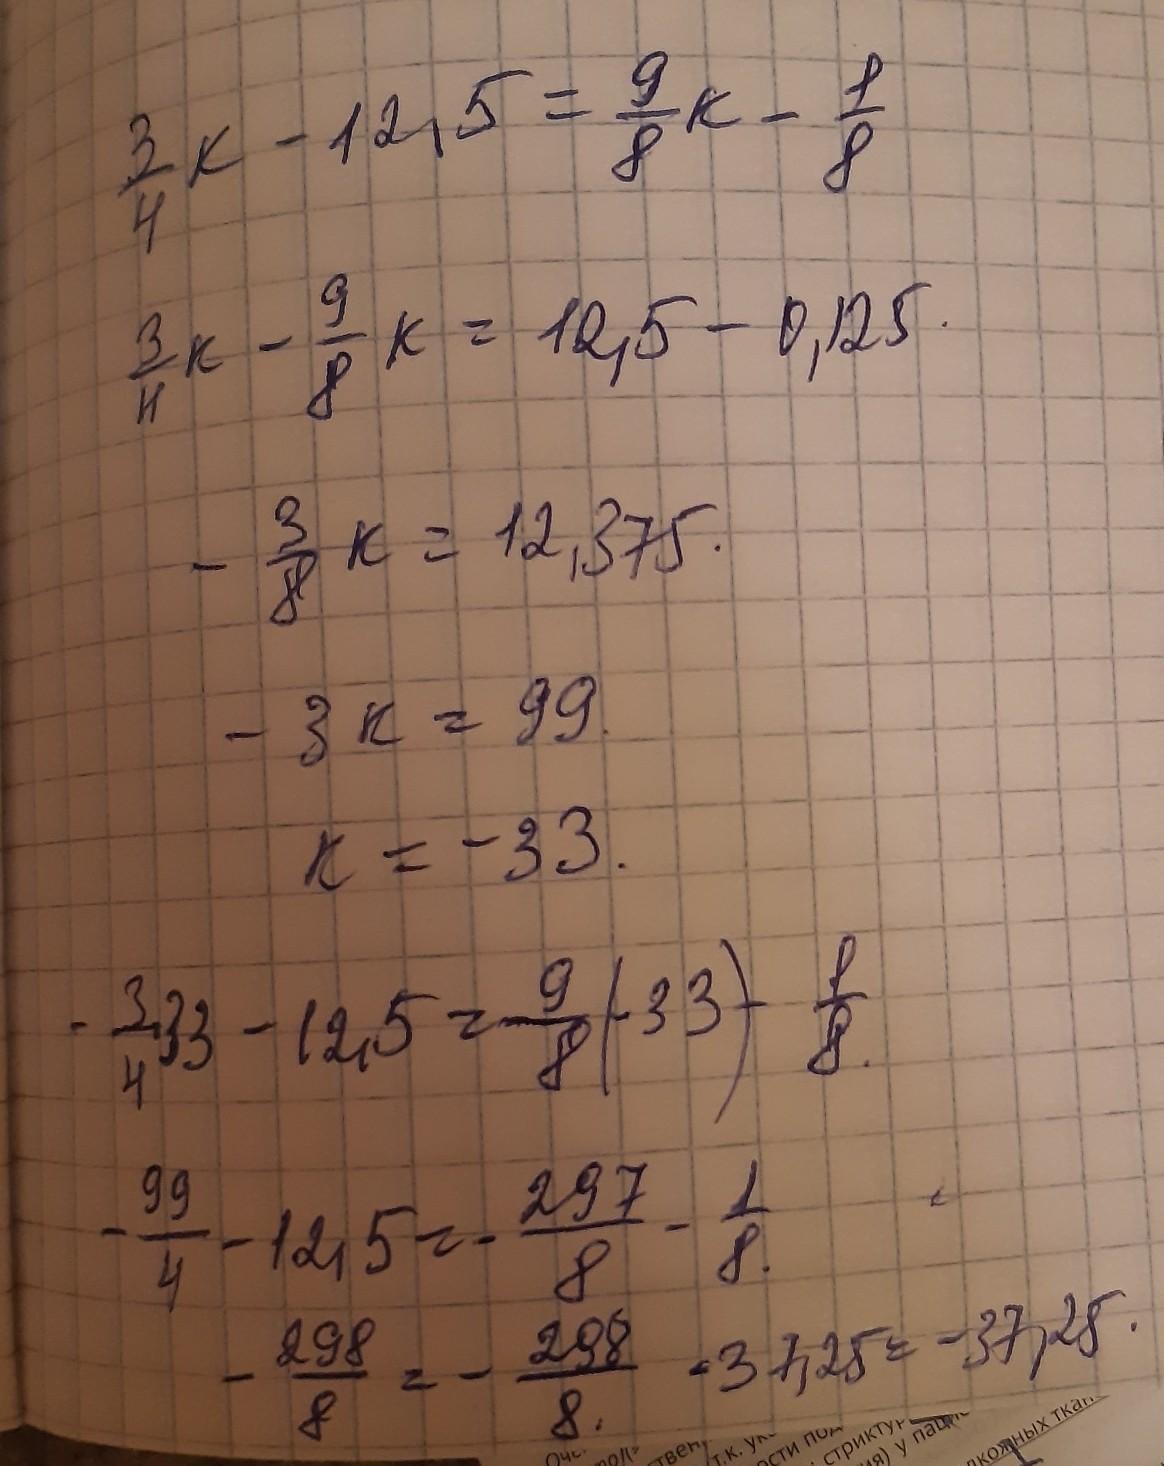 3/4 к - 12,5 = 9/8 к - 1/8
3/4 к - 9/8 к = 12,5 - 0,125.
- 3/8 к = 12,375.
- 3к = 99.
к = -33.
- 3/4 33 - 12,5 = 9/8 (-33) - 1/8.
- 99/4 - 12,5 = - 297/8 - 1/8.
- 298/8 = - 298/8. -37,25 = -37,25.
т.к.
ости под
стриктур
ия) у пацие
дкожных ткан